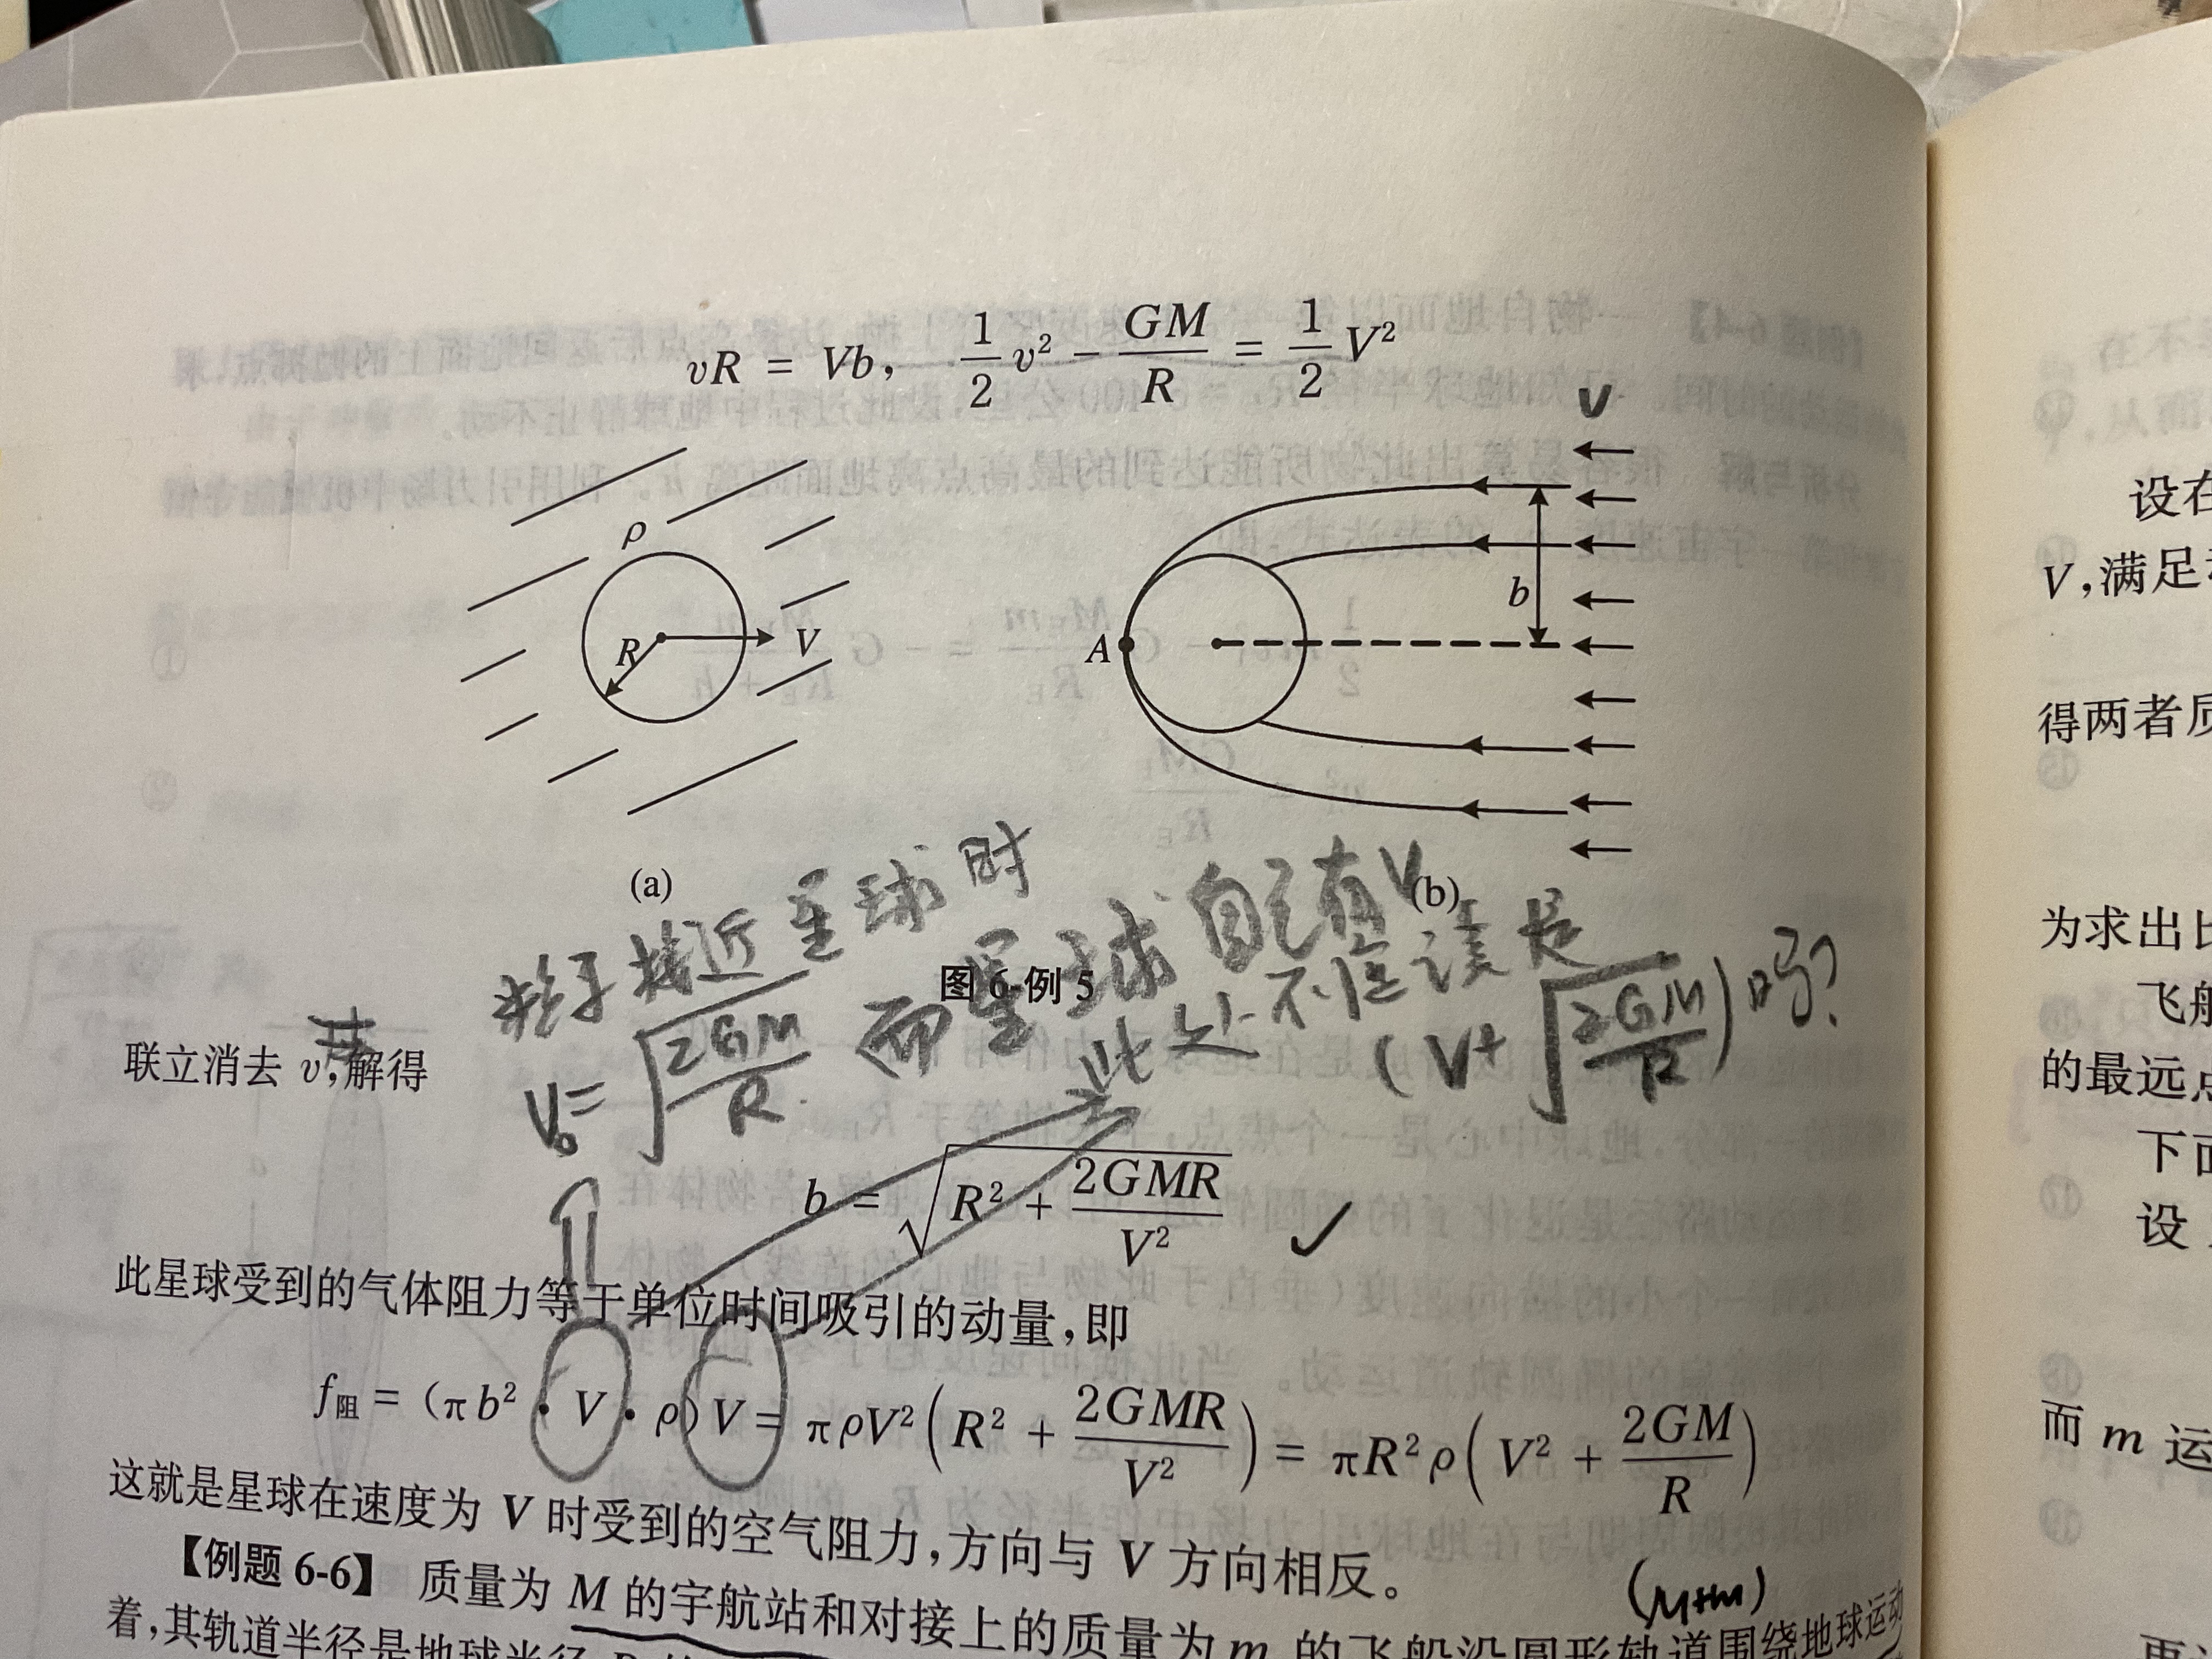 vR = Vb, 1/2 v² − GM/R = 1/2 V²
V
ρ
R
V
A
b
(a)
(b)
图 6-例 5
粒子接近星球时
V₀ = √(2GM/R)
而星球自己有V
此处不应该是
(V + √(2GM/R)) 吗?
联立消去 v,解得
b = √(R² + 2GMR/V²)
此星球受到的气体阻力等于单位时间吸引的动量,即
f阻 = (πb² · V · ρ)V = πρV²(R² + 2GMR/V²) = πR²ρ(V² + 2GM/R)
这就是星球在速度为 V 时受到的空气阻力,方向与 V 方向相反。
(M+m)
【例题 6-6】 质量为 M 的宇航站和对接上的质量为 m 的飞船沿圆形轨道围绕地球运动
着,其轨道半径是地球半径
设在
V,满足
得两者质
为求出比
飞船
的最远点
下面
设
而 m 运